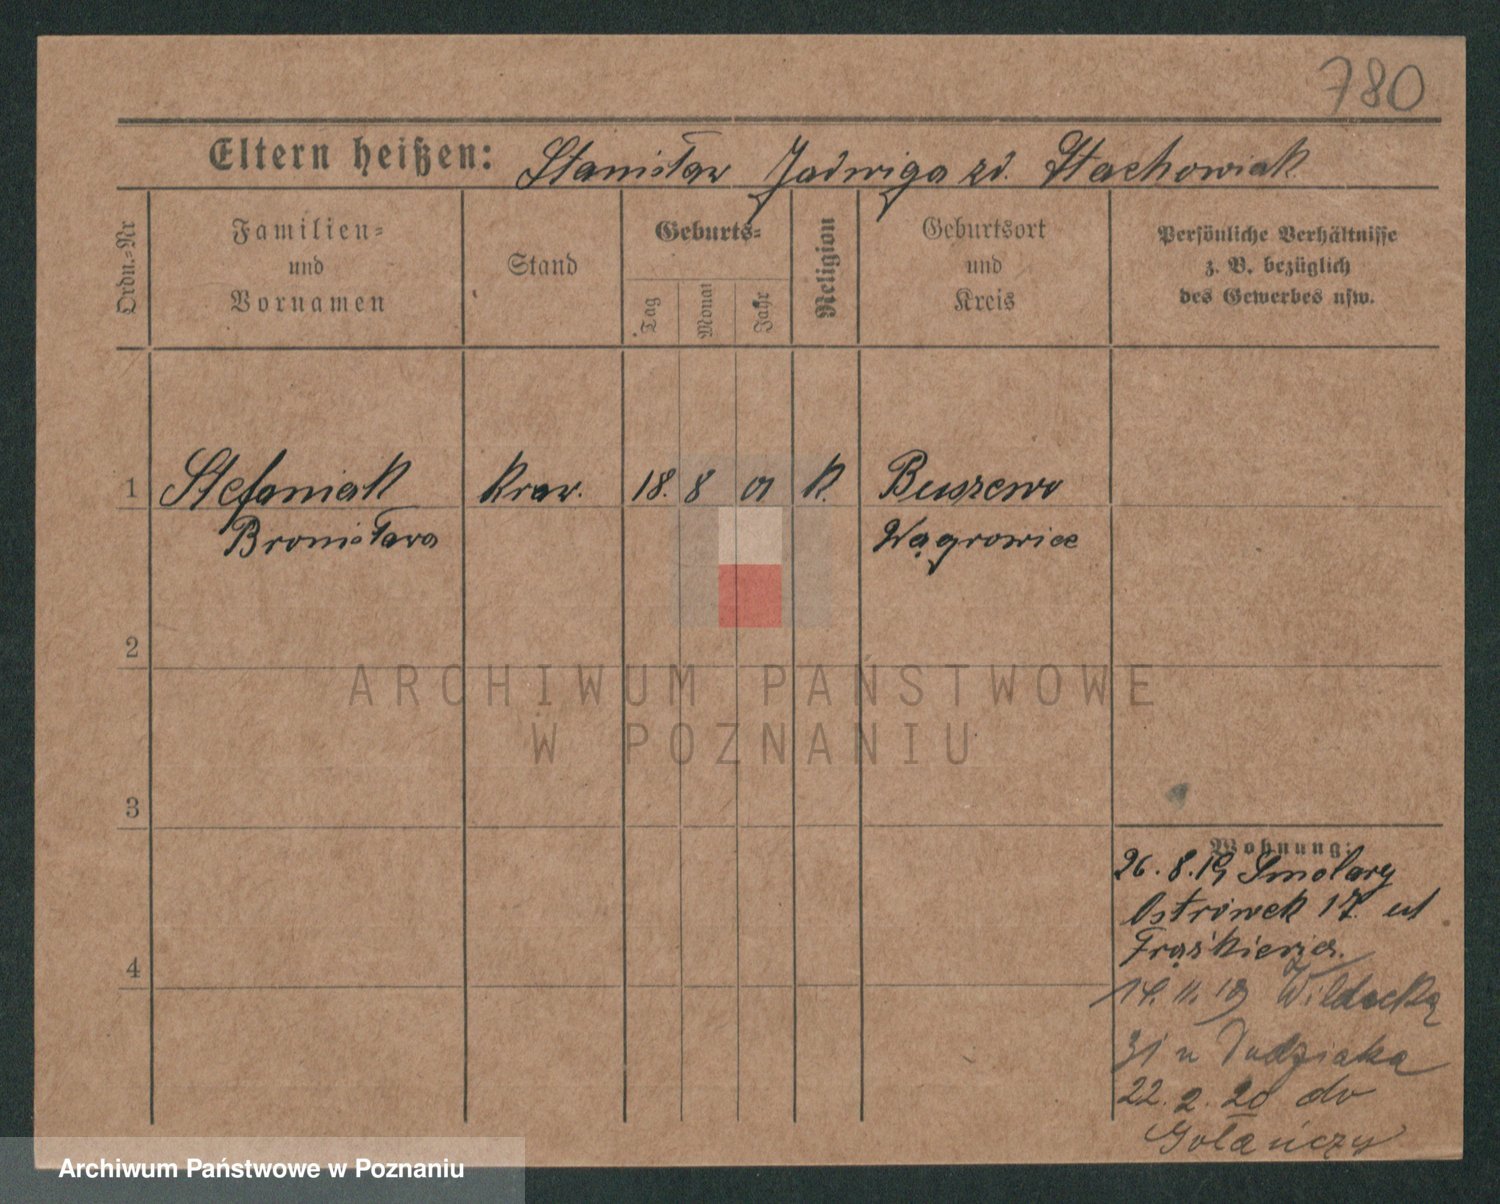 780
Eltern heißen: Stanisław Jadwiga zd. Stachowiak
Ordn.-Nr
Familien-
und
Vornamen
Stand
Geburts-
Tag
Monat
Jahr
Religion
Geburtsort
und
Kreis
Persönliche Verhältnisse
z. B. bezüglich
des Gewerbes usw.
1 Stefaniak kraw. 18. 8 01 k. Buszewo
Bronisława Wągrowiec
2
3
4
Wohnung:
26.8.19 Smolary
Ostrówek 17. u
14.11.19 Wildecką
31 u Dudziaka
22.2.20 do
Gołańczy
ARCHIWUM PAŃSTWOWE
W POZNANIU
Archiwum Państwowe w Poznaniu